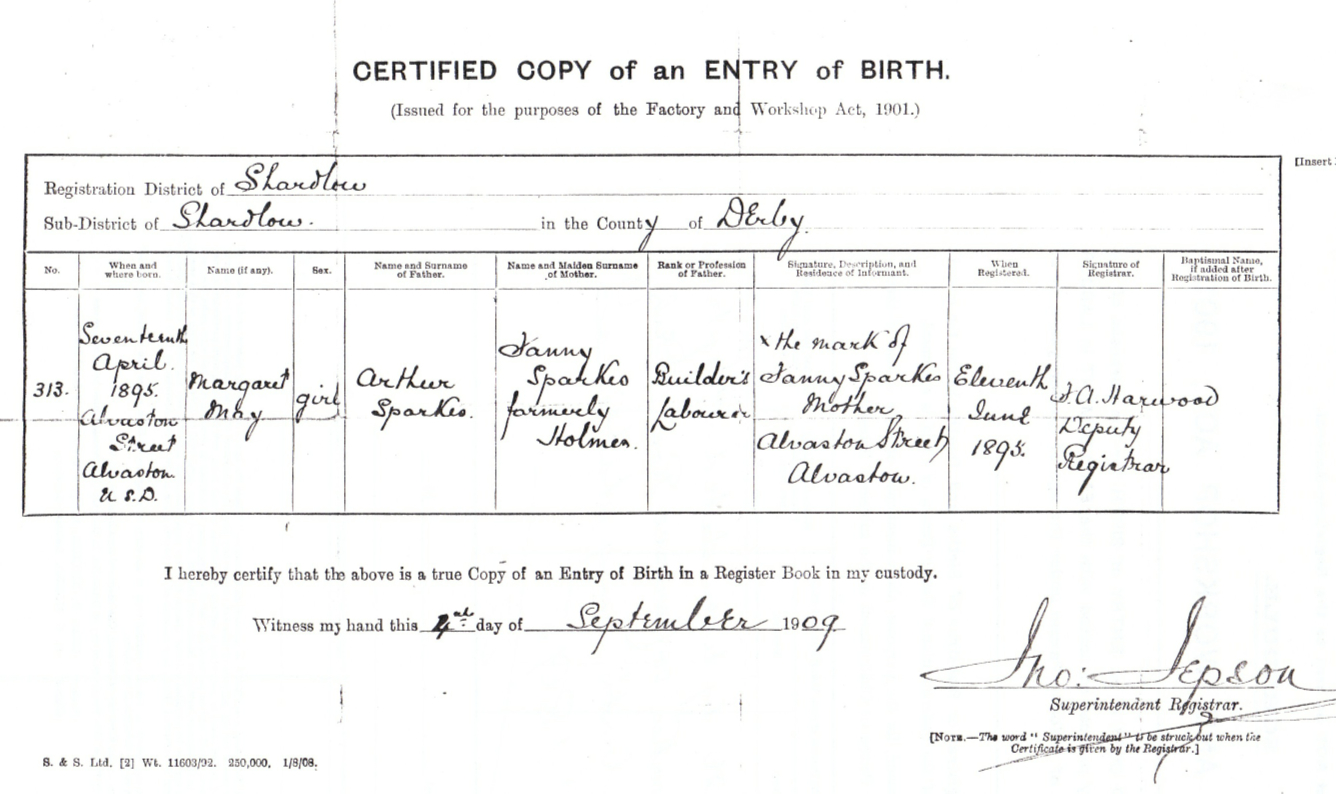 CERTIFIED COPY of an ENTRY of BIRTH.
(Issued for the purposes of the Factory and Workshop Act, 1901.)
[Insert
Registration District of Shardlow
Sub-District of Shardlow. in the County of Derby.
No.
When and
where born.
Name (if any).
Sex.
Name and Surname
of Father.
Name and Maiden Surname
of Mother.
Rank or Profession
of Father.
Signature, Description, and
Residence of Informant.
When
Registered.
Signature of
Registrar.
Baptismal Name,
if added after
Registration of Birth.
313.
Seventeenth
April.
1895.
Alvaston
Street
Alvaston.
U S.D.
Margaret
May
girl
Arthur
Sparkes.
Fanny
Sparkes
formerly
Holmes.
Builder's
Labourer
x the mark of
Fanny Sparkes
Mother
Alvaston Street
Alvaston.
Eleventh
June
1895.
Harwood
Deputy
Registrar
I hereby certify that the above is a true Copy of an Entry of Birth in a Register Book in my custody.
Witness my hand this day of September 1909
Jno: Jepson
Superintendent Registrar.
[NOTE.—The word "Superintendent" to be struck out when the
Certificate is given by the Registrar.]
S. & S. Ltd. [2] Wt. 11603/92. 250,000. 1/8/08.